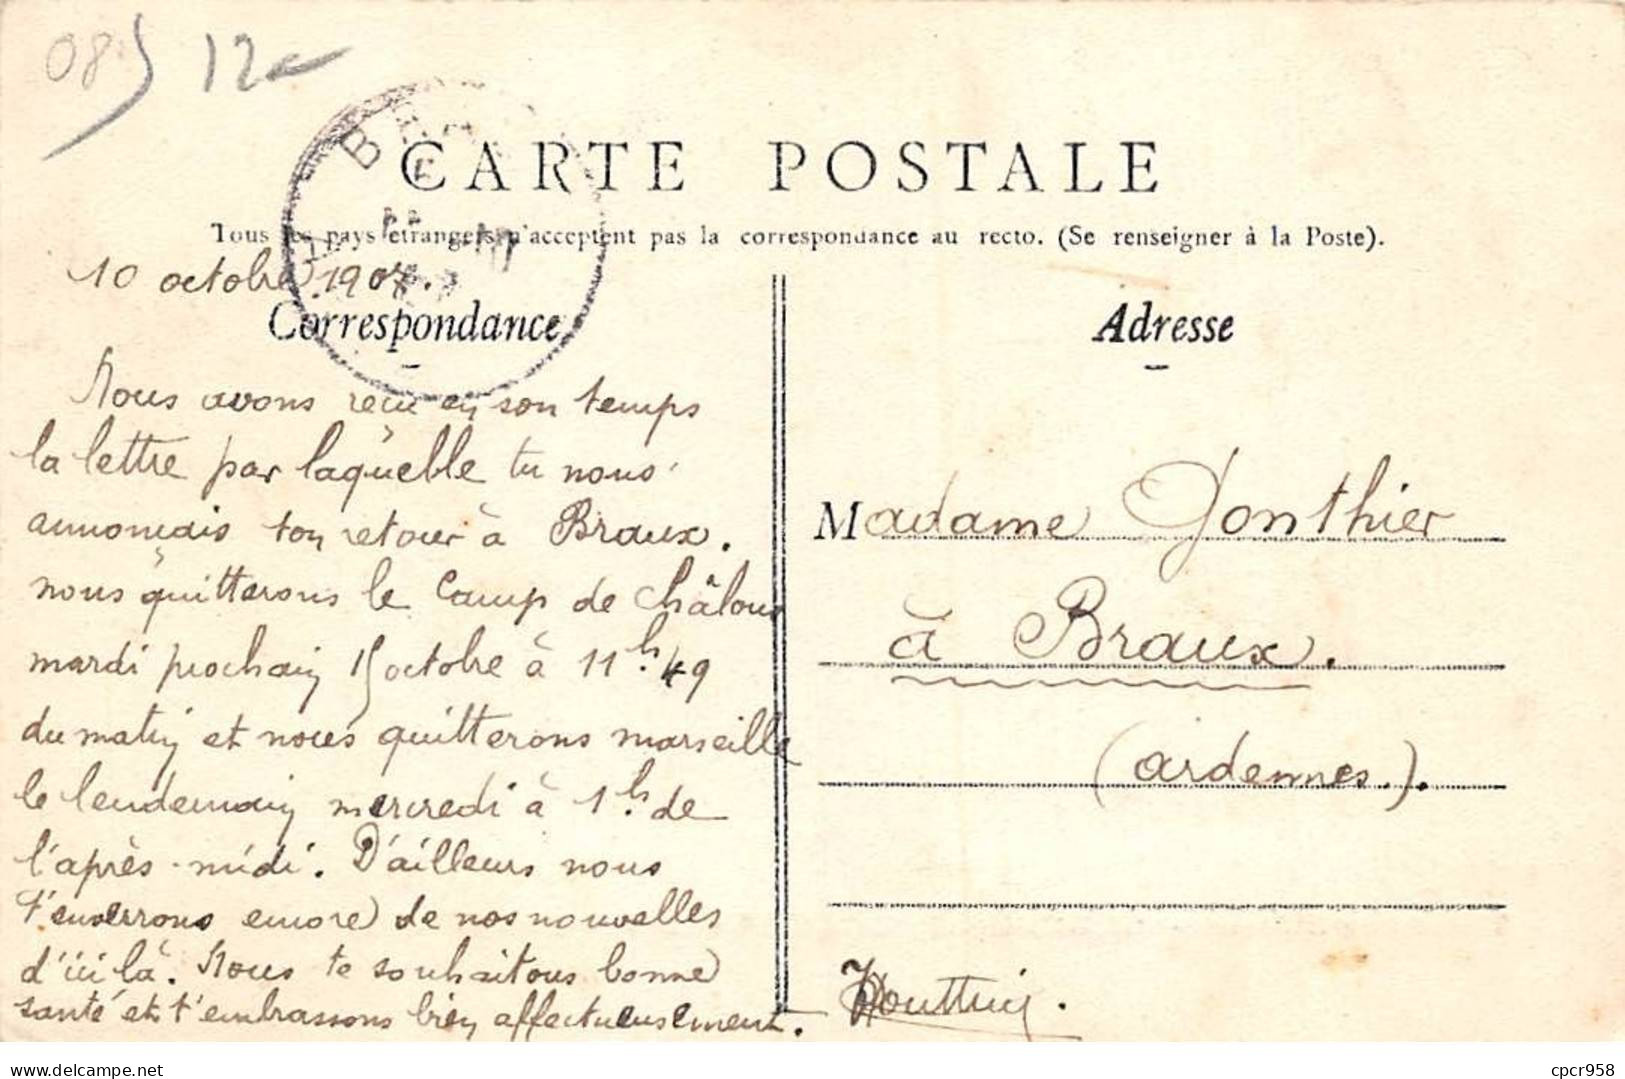 08 12e
CARTE POSTALE
Tous les pays étrangers n'acceptent pas la correspondance au recto. (Se renseigner à la Poste).
10 octobre 1907.
Correspondance
Nous avons reçu en son temps
la lettre par laquelle tu nous
annonçais ton retour à Braux.
nous quitterons le Camp de Châlons
mardi prochain 15 octobre à 11h. 49
du matin et nous quitterons marseille
le lendemain mercredi à 1h. de
l'après-midi. D'ailleurs nous
t'enverrons encore de nos nouvelles
d'ici là. Nous te souhaitons bonne
santé et t'embrassons bien affectueusement.
Adresse
Madame Gonthier
à Braux.
(ardennes.).
delcampe.net
cpcr958